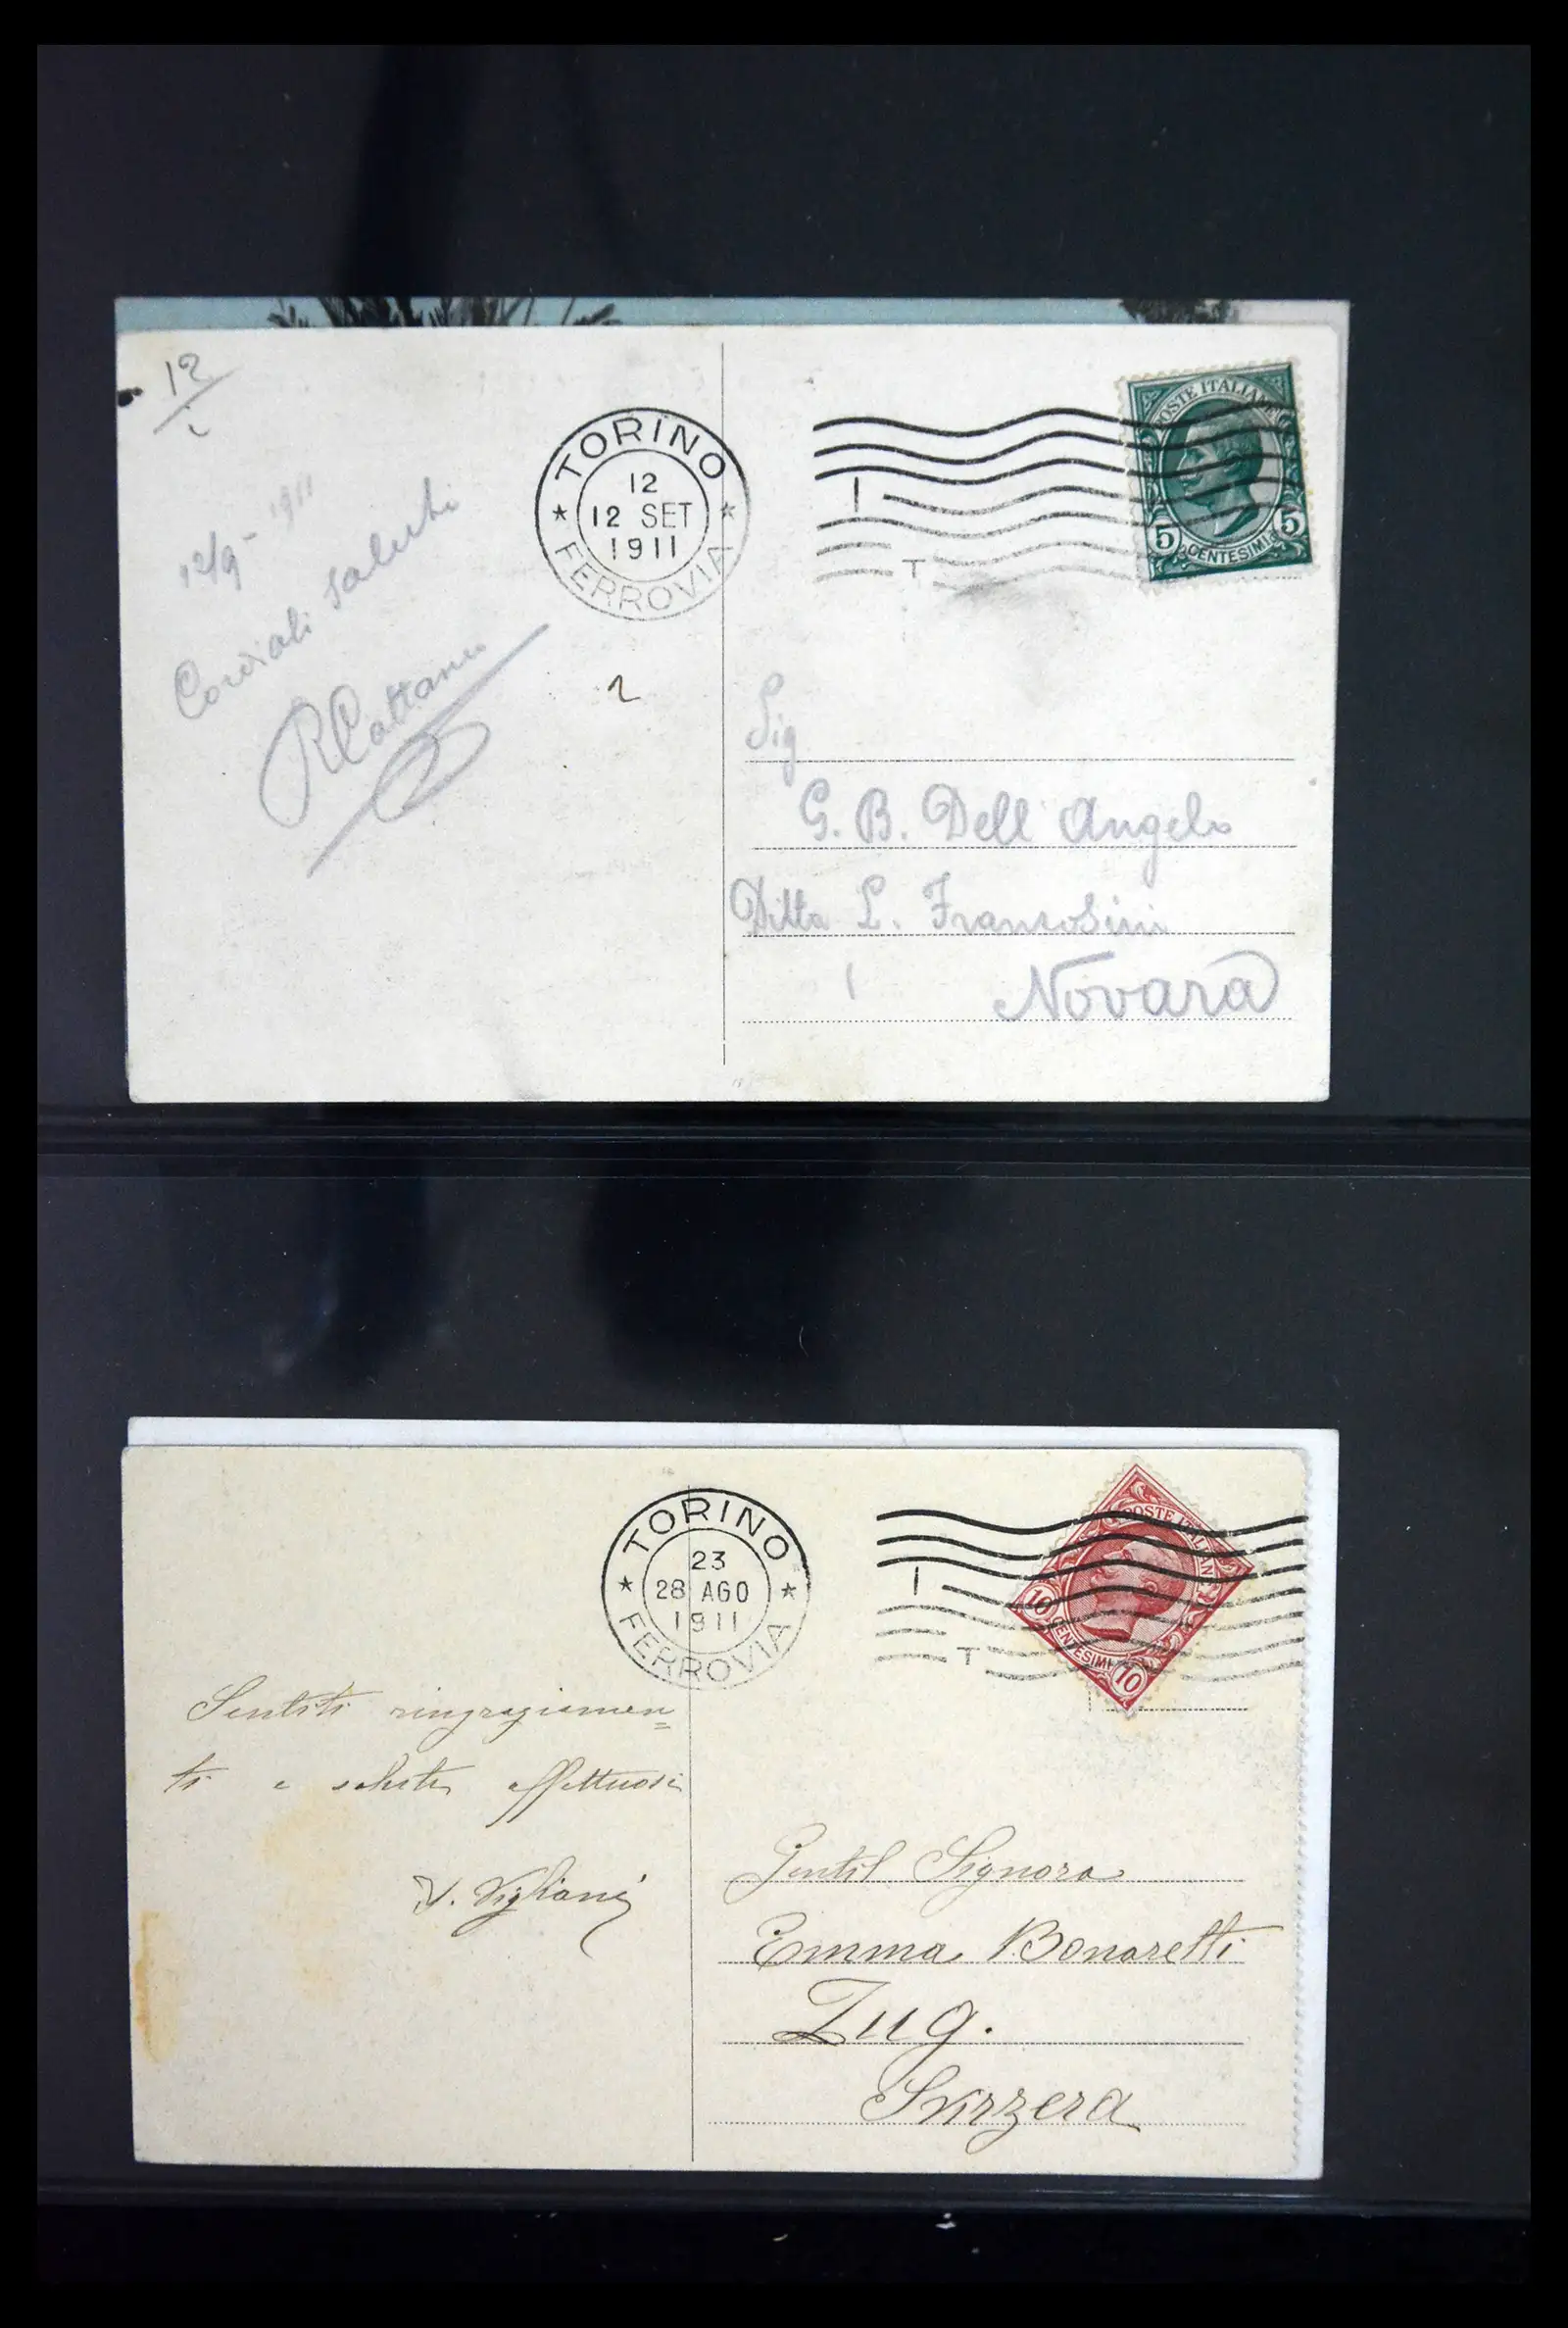 12
TORINO
12
12 SET
1911
FERROVIA
I
T
POSTE ITALIANE
5 CENTESIMI 5
12/9 - 1911
Cordiali saluti
RCattaneo
2
Sig
G. B. Dell Angelo
Ditta L.
Novara
TORINO
23
28 AGO
1911
FERROVIA
I
T
POSTE ITALIANE
10 CENTESIMI 10
Sentiti ringraziamen=
ti e saluti affettuosi
V. Vigliani
Gentil Signora
Emma Bonaretti
Zug.
Svizzera